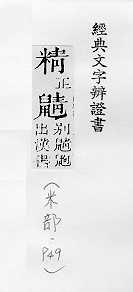 經典文字辨證書
精 正
別
出漢書
(米部.
P49)